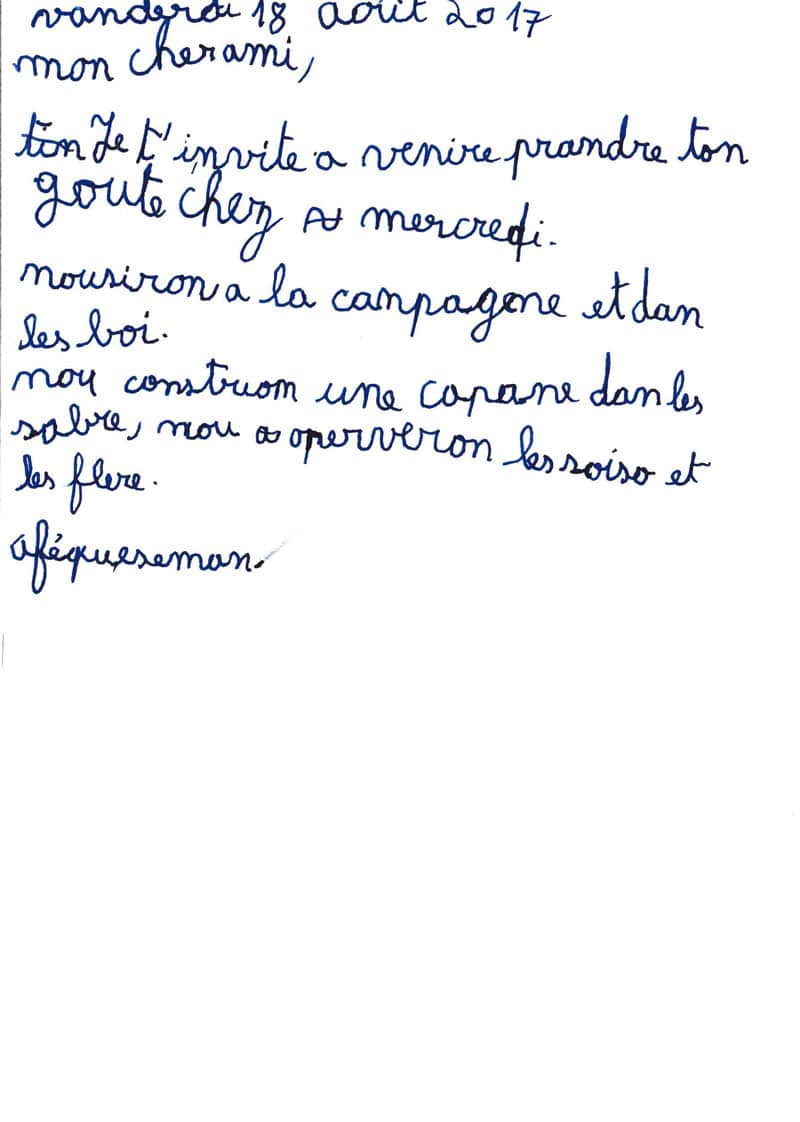 vanderdi 18 août 2017
mon cher ami,
ton Je t'invite a venire prandre ton
goute chez mercredi.
nousiron a la canpagene et dan
les boi.
nou construon une capane dan les
sabre, nou operveron les soiso et
les flere.
aféqueseman.